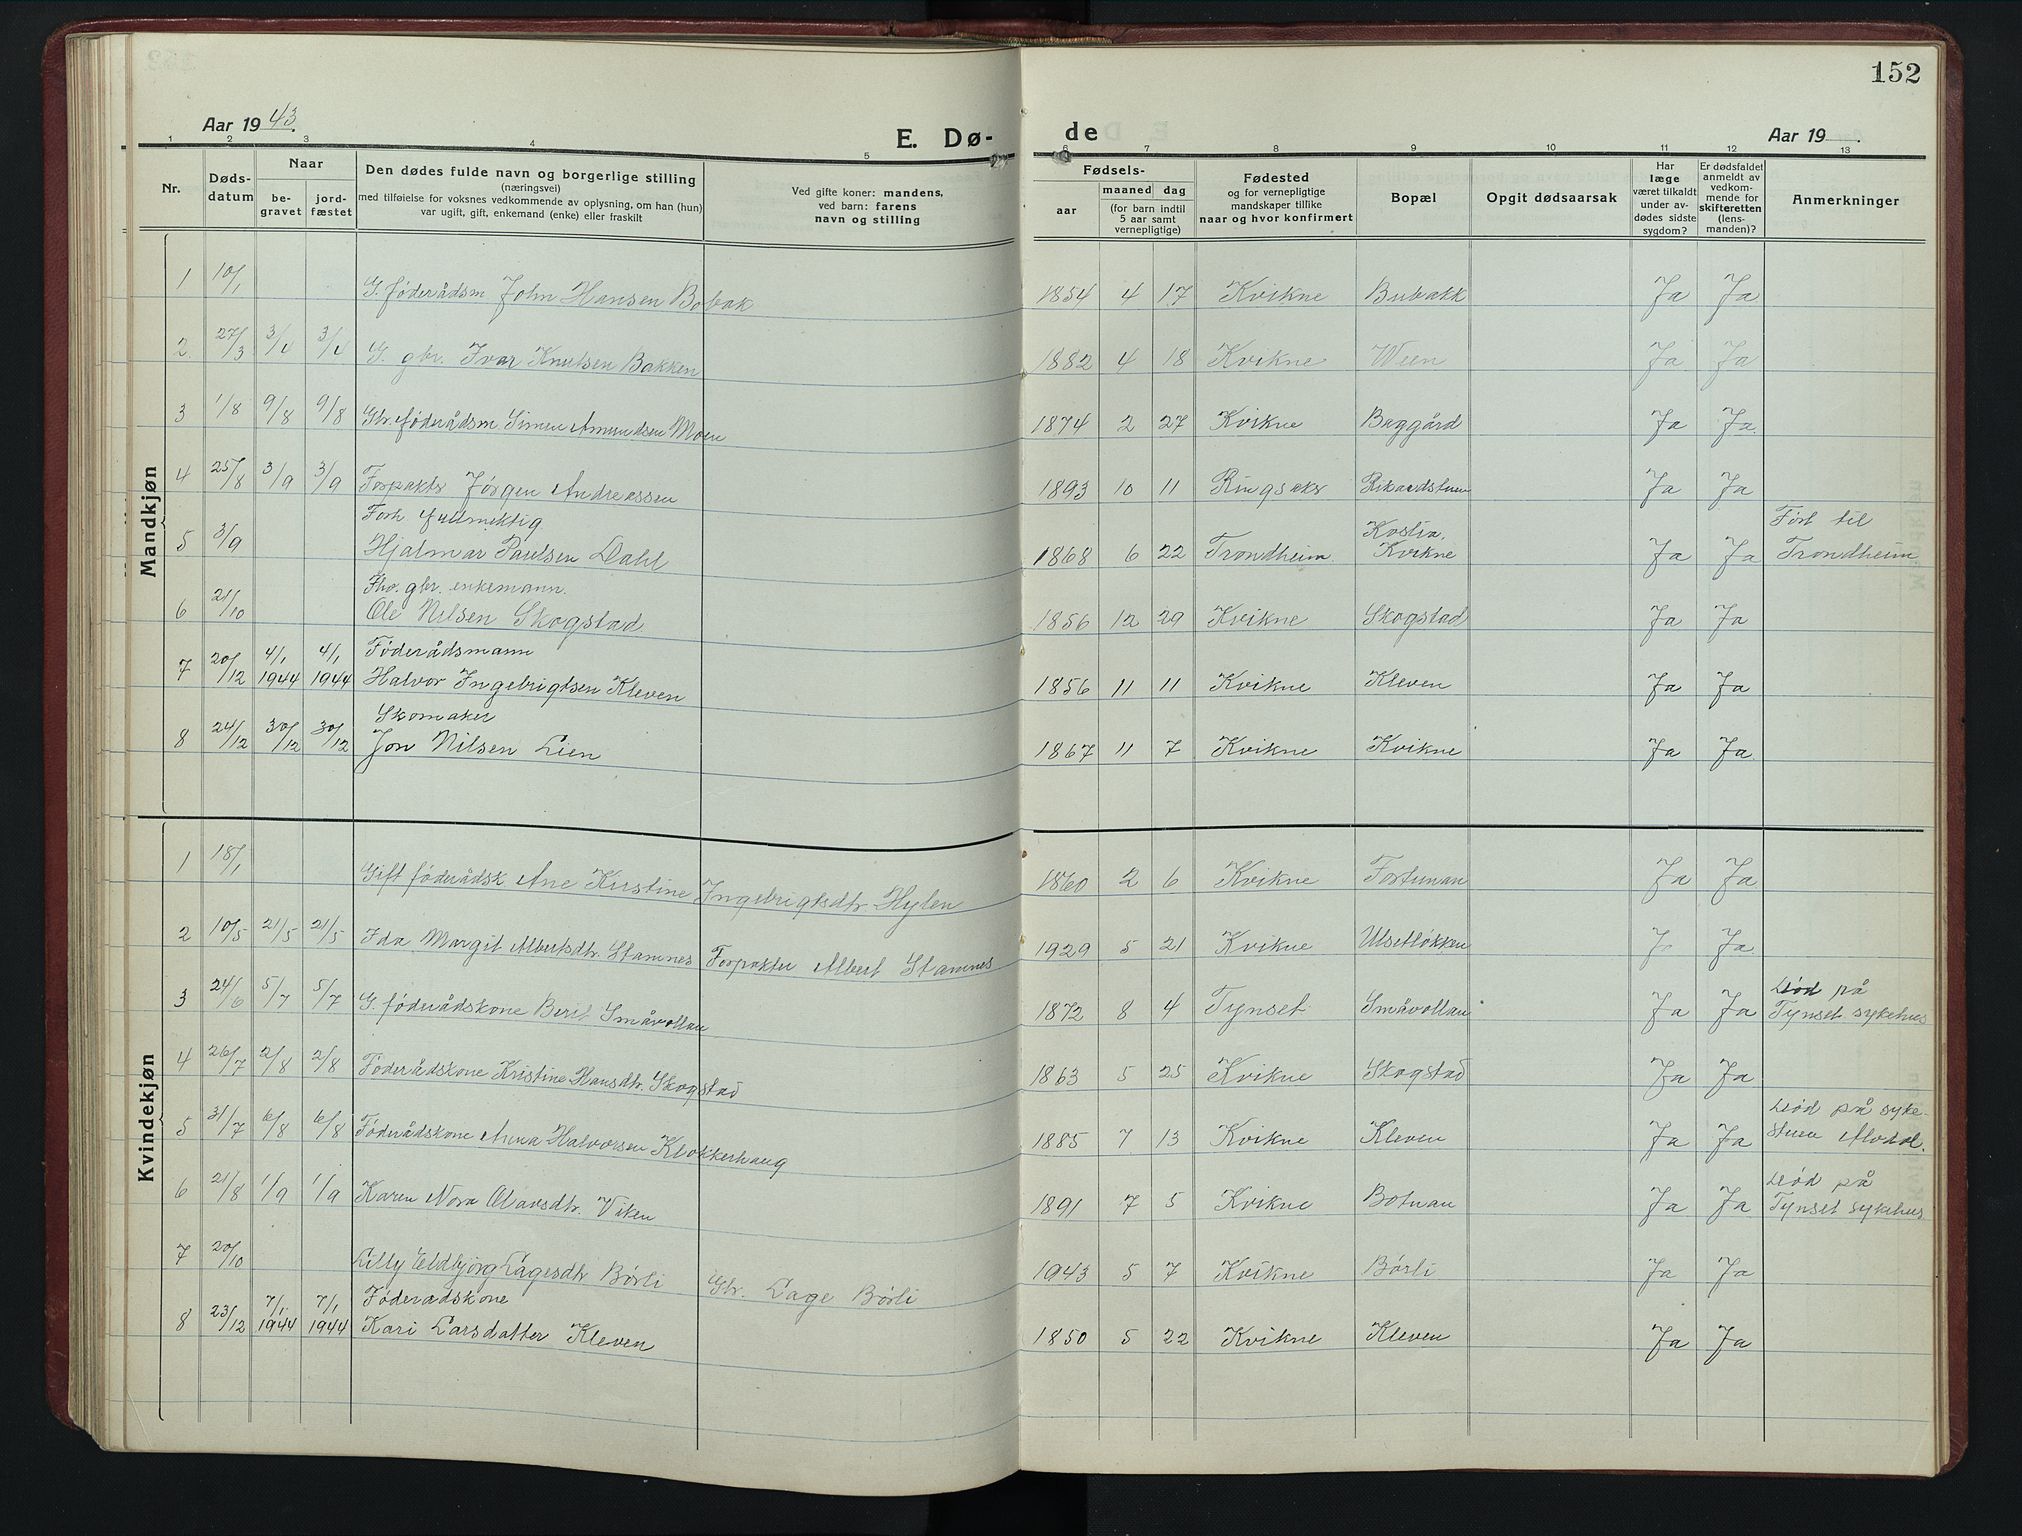 152
Aar 19 43.
E. Dø-
de
Aar 19
1 2 3 4 5 6 7 8 9 10 11 12 13
Nr.
Døds-
datum
Naar
be-
gravet
jord-
fæstet
Den dødes fulde navn og borgerlige stilling
(næringsvei)
med tilføielse for voksnes vedkommende av oplysning, om han (hun)
var ugift, gift, enkemand (enke) eller fraskilt
Ved gifte koner: mandens,
ved barn: farens
navn og stilling
Fødsels-
aar
maaned dag
(for barn indtil
5 aar samt
vernepligtige)
Fødested
og for vernepligtige
mandskaper tillike
naar og hvor konfirmert
Bopæl
Opgit dødsaarsak
Har
læge
været tilkaldt
under av-
dødes sidste
sygdom?
Er dødsfaldet
anmeldt av
vedkom-
mende for
skifteretten
(lens-
manden)?
Anmerkninger
Mandkjøn
1 10/1 G. føderådsm John Hansen Bobak 1854 4 17 Kvikne Bubakk Ja Ja
2. 27/3 3/4 3/4 G. gbr. Ivar Knutsen Bakken 1882 4 18 Kvikne Ween Ja Ja
3 1/8 9/8 9/8 Gbr. føderådsm Simen Amundsen Moen 1874 2 27 Kvikne Baggård Ja Ja.
4 25/8 3/9 3/9 Forpakter Jørgen Andreassen 1893 10 11 Ringsaker Rikardstuen Ja Ja
Forh. fullmektig
5 3/9 Hjalmar Paulsen Dahl 1868 6 22 Trondheim. Kostia, Kvikne Ja Ja Ført til Trondheim
Fhv. gbr. enkemann.
6 21/10 Ole Nilsen Skogstad 1856 12 29 Kvikne Skogstad Ja Ja
Føderådsmann
7 20/12 4/1 1944 4/1 1944 Halvor Ingebrigtsen Kleven 1856 11 11 Kvikne Kleven Ja Ja
Skomaker
8 24/12 30/12 30/12 Jon Nilsen Lien 1867 11 7 Kvikne Kvikne Ja Ja
Kvindekjøn
1 18/1 Gift føderådsk Ane Kirstine Ingebrigtsdtr. Hylen 1860 2 6 Kvikne Fortunan Ja Ja
2 10/5 21/5 21/5 Ida Margit Albertsdtr. Stamnes Forpakter Albert Stamnes 1929 5 21 Kvikne Ulsetløkken Ja.
3 24/6 5/7 5/7 G. føderådskone Berit Småvollan 1872 8 4 Tynset Småvollan Ja Ja Død på Tynset sykehus
4 26/7 2/8 2/8 Føderådskone Kristine Hansdtr. Skogstad 1863 5 25 Kvikne Skogstad Ja Ja
5 31/7 6/8 6/8 Føderådskone Anna Halvorsen Klokkerhaug 1885 7 13 Kvikne Kleven Ja Ja Død på syke- stuen Alvdal.
6 21/8 1/9 1/9 Karen Nora Olavsdtr. Viken 1891 7 5 Kvikne Botnan Ja Ja Død på Tynset sykehus.
7 20/10 Lilly Eldbjørg Lagesdtr Børli Gbr. Lage Børli 1943 5 7 Kvikne Børli Ja Ja
Føderådskone
8 23/12 7/1 1944 7/1 1944 Kari Larsdatter Kleven 1850 5 22 Kvikne Kleven Ja Ja